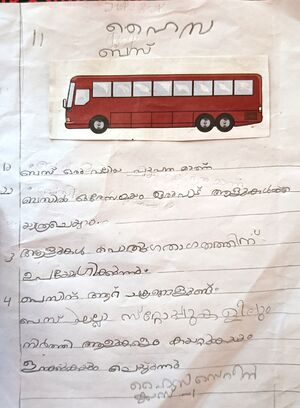 11
ഹൈസ
ബസ്
1) ബസ് ഒരു വലിയ വാഹന മാണ്
2) ബസിൽ ഒരേസമയം ഒരുപാട് ആളുകൾക്ക്
യാത്രചെയ്യാം.
3 ആളുകൾ പൊതുഗതാഗതത്തിന്
ഉപയോഗിക്കുന്നു.
4 ബസിന് ആറ് ചക്രങ്ങളുണ്ട്.
ബസ് എല്ലാ സ്റ്റോപ്പുക ളിലും
നിർത്തി ആളുകളെ കയറ്റുകയും
ഇറക്കുകയും ചെയ്യുന്നു
ക്ലാസ് -1